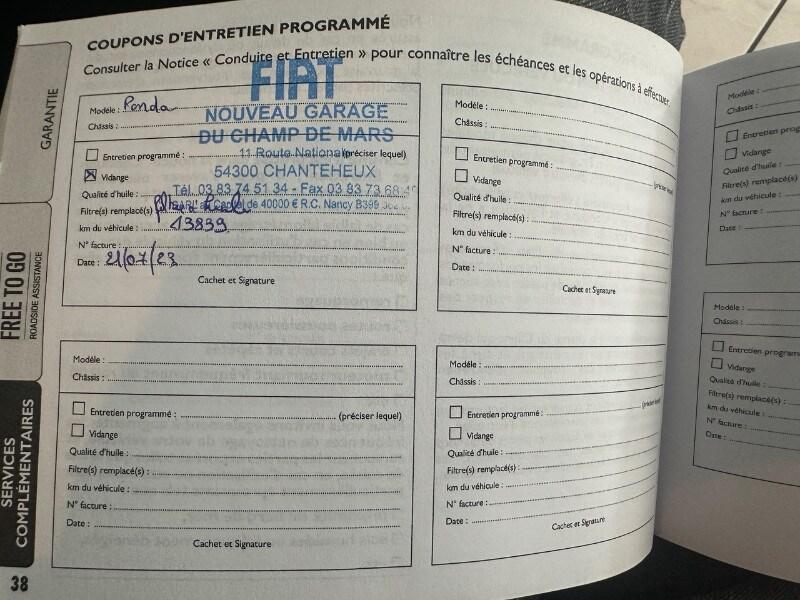 COUPONS D'ENTRETIEN PROGRAMMÉ
Consulter la Notice « Conduite et Entretien » pour connaître les échéances et les opérations à effectuer.
GARANTIE
FREE TO GO
ROADSIDE ASSISTANCE
SERVICES
COMPLÉMENTAIRES
38
FIAT
NOUVEAU GARAGE
DU CHAMP DE MARS
11 Route Nationale
54300 CHANTEHEUX
Tél. 03 83 74 51 34 - Fax 03 83 73 68
SARL au Capital de 40000 € R.C. Nancy B399
Modèle : Panda
Châssis :
Entretien programmé : (préciser lequel)
Vidange
Qualité d'huile :
Filtre(s) remplacé(s)
km du véhicule : 13839
N° facture :
Date : 21/07/23
Cachet et Signature
Modèle :
Châssis :
Entretien programmé :
(préciser lequel)
Vidange
Qualité d'huile :
Filtre(s) remplacé(s) :
km du véhicule :
N° facture :
Date :
Cachet et Signature
Modèle :
Châssis :
Entretien programmé : (préciser lequel)
Vidange
Qualité d'huile :
Filtre(s) remplacé(s) :
km du véhicule :
N° facture :
Date :
Cachet et Signature
Modèle :
Châssis :
Entretien programmé : (préciser lequel)
Vidange
Qualité d'huile :
Filtre(s) remplacé(s) :
km du véhicule :
N° facture :
Date :
Cachet et Signature
Modèle :
Châssis :
Entretien prog
Vidange
Qualité d'huile :
Filtre(s) remplacé(s) :
km du véhicule :
N° facture :
Date :
Modèle :
Châssis :
Entretien program
Vidange
Qualité d'huile :
Filtre(s) remplacé(s) :
km du véhicule :
N° facture :
Date :